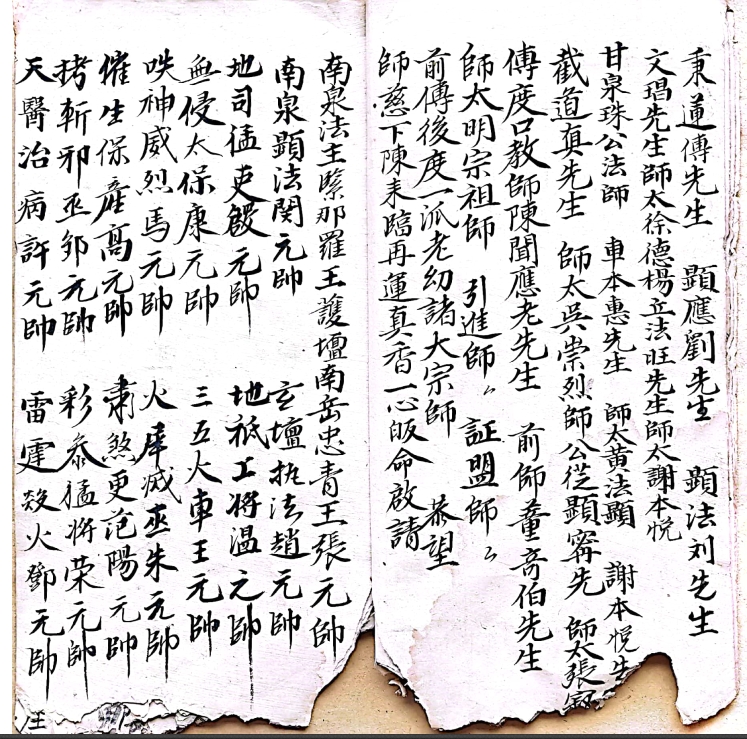 秉蓮傳先生 顯應劉先生 顯法刘先生
文琩先生師太徐德楊立法旺先生師太謝本悦
甘泉珠公法師 車本惠先生 師太黄法顯 謝本悦生
截道真先生 師太吳崇烈師公從顯寗先 師太張
傳度口教師陳聞應老先生 前師童奇伯先生
師太明宗祖師 引進師〻 証盟師〻
前傳後度一派老幼諸大宗師 恭望
師慈下陳來臨再運真香一心皈命啟請
南泉法主緊那羅王護壇南岳忠青王張元帥
南泉顯法関元帥 玄壇执法趙元帥
地司猛吏殷元帥 地祇工将温之帥
無侵太保康元帥 三五火車王元帥
呹神威烈馬元帥 火犀滅巫朱元帥
催生保產高元帥 肅煞更范陽元帥
拷斬邪巫鄧元帥 彩叅猛将荣元帥
天醫治病許元帥 雷霆殺火鄧元帥